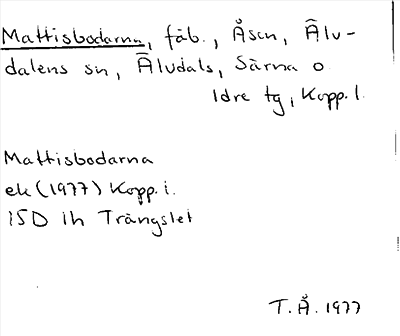 Mattisbodarna, fäb., Åsen, Älv-
dalens sn, Älvdals, Särna o
Idre tg, Kopp. l.
Mattisbodarna
ek (1977) Kopp. i.
15D 1h Trängslet
T.Å. 1977